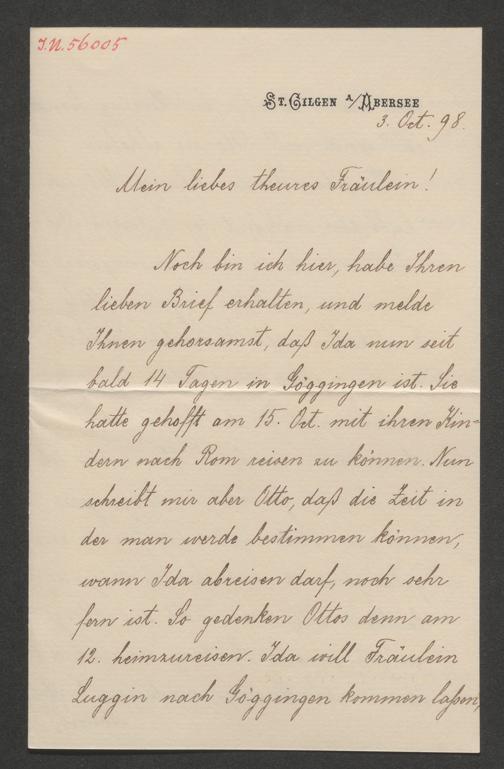 I.N. 56005
ST. GILGEN A/ABERSEE
3. Oct. 98.
Mein liebes theures Fräulein!
Noch bin ich hier, habe Ihren
lieben Brief erhalten, und melde
Ihnen gehorsamst, daß Ida nun seit
bald 14 Tagen in Göggingen ist. Sie
hatte gehofft am 15. Oct. mit ihren Kin-
dern nach Rom reisen zu können. Nun
schreibt mir aber Otto, daß die Zeit in
der man werde bestimmen können,
wann Ida abreisen darf, noch sehr
fern ist. So gedenken Ottos denn am
12. heimzureisen. Ida will Fräulein
Luggin nach Göggingen kommen laßen,